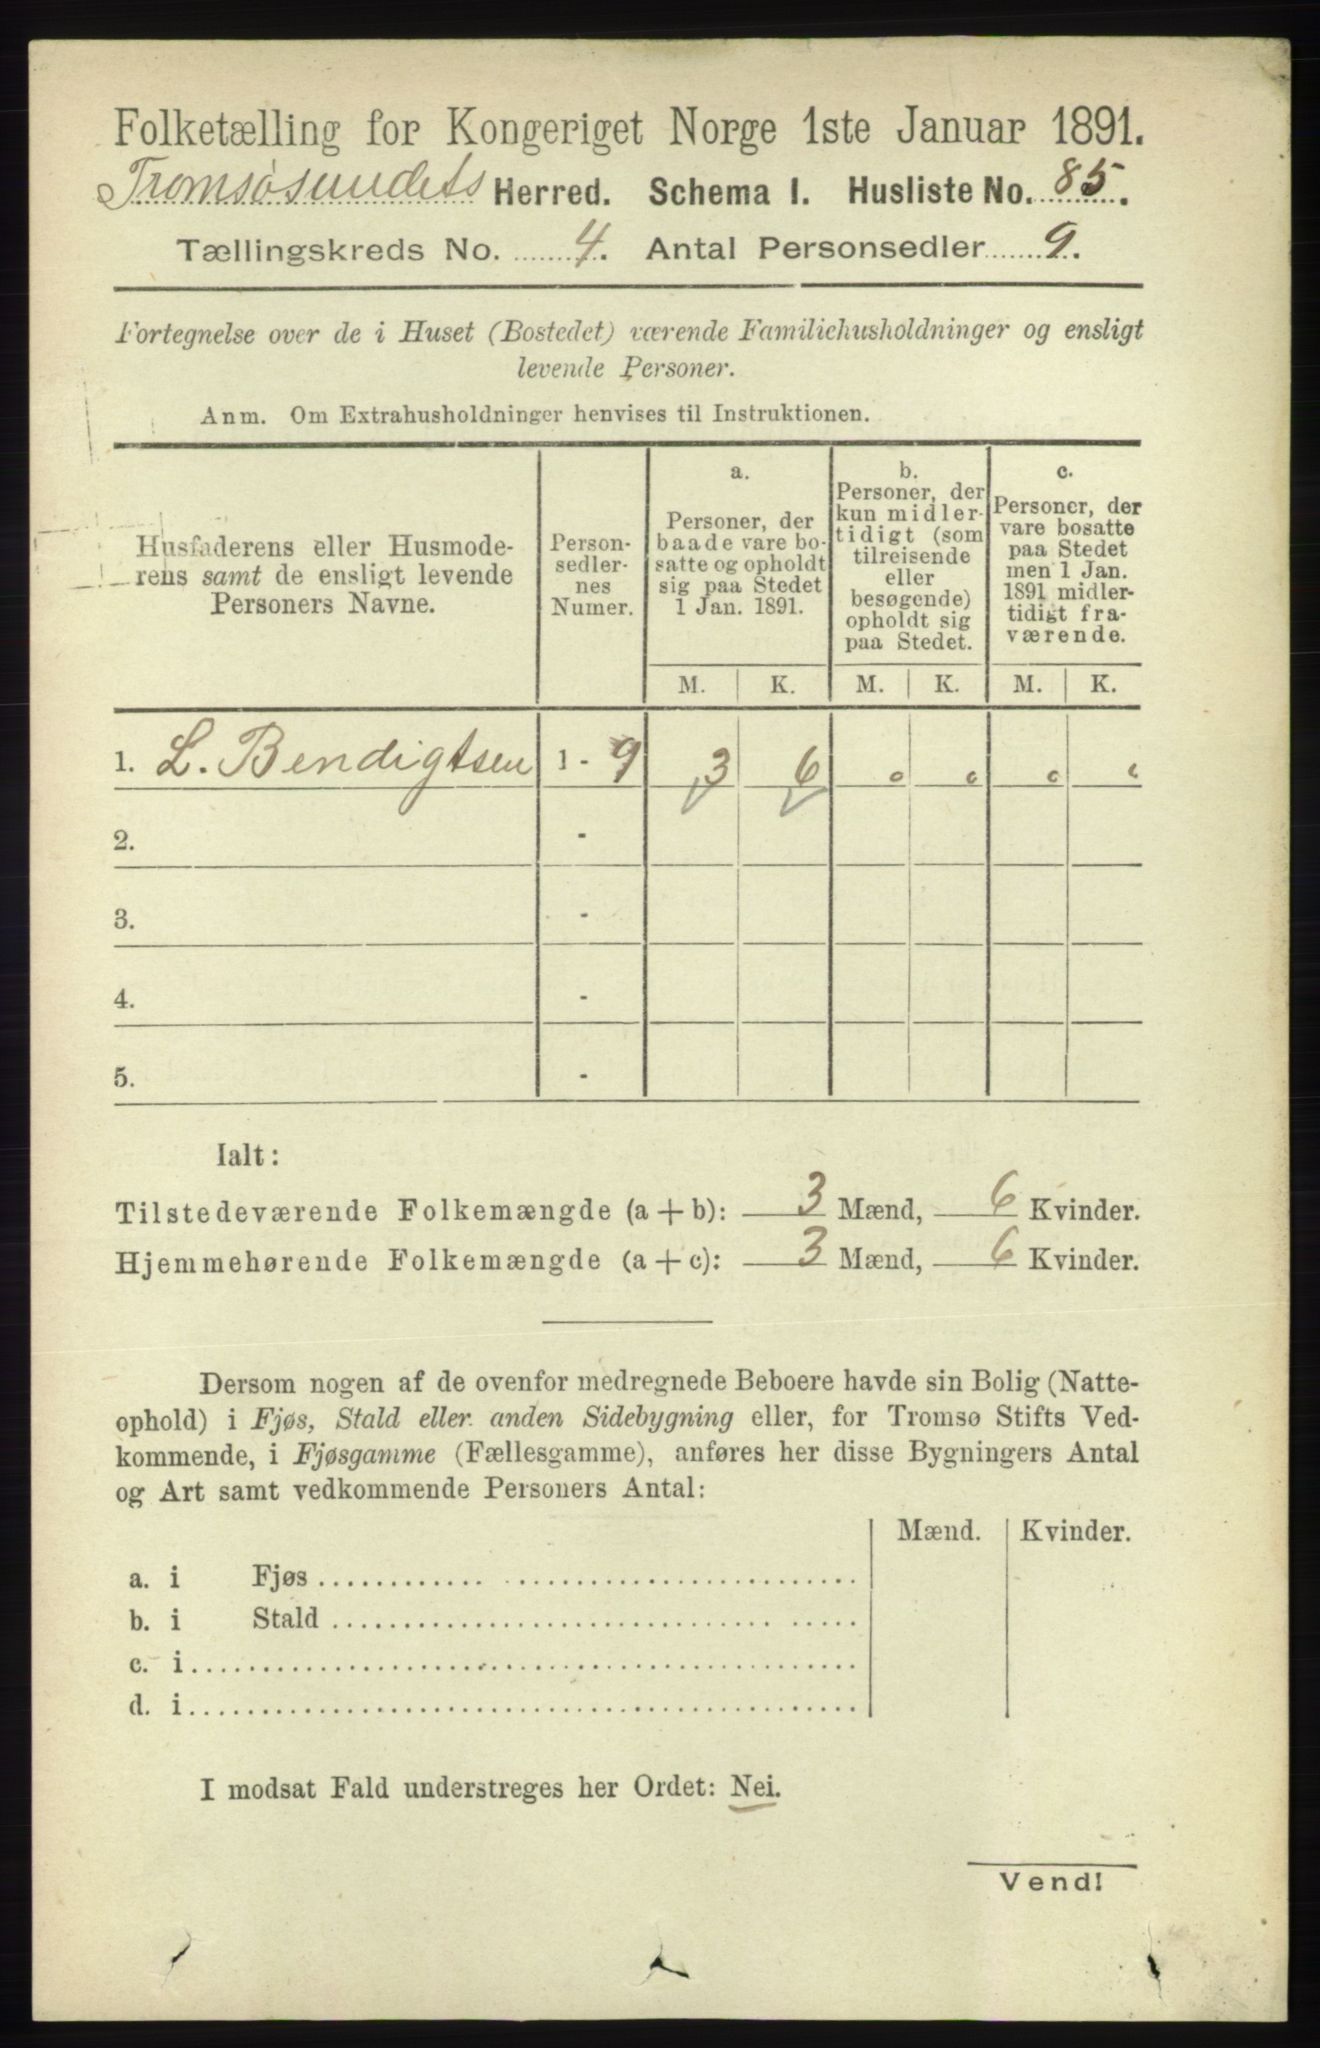 Folketælling for Kongeriget Norge 1ste Januar 1891.
Tromsøsundets Herred. Schema I. Husliste No. 85.
Tællingskreds No. 4. Antal Personsedler 9.
Fortegnelse over de i Huset (Bostedet) værende Familiehusholdninger og ensligt
levende Personer.
Anm. Om Extrahusholdninger henvises til Instruktionen.
Husfaderens eller Husmode-
rens samt de ensligt levende
Personers Navne.
Person-
sedler-
nes
Numer.
a.
Personer, der
baade vare bo-
satte og opholdt
sig paa Stedet
1 Jan. 1891.
b.
Personer, der
kun midler-
tidigt (som
tilreisende
eller
besøgende)
opholdt sig
paa Stedet.
c.
Personer, der
vare bosatte
paa Stedet
men 1 Jan.
1891 midler-
tidigt fra-
værende.
M. K. M. K. M. K.
1. L. Bendigtsen 1 - 9 3 6 0 0 0 0
2. -
3. -
4. -
5. -
Ialt:
Tilstedeværende Folkemængde (a + b): 3 Mænd, 6 Kvinder.
Hjemmehørende Folkemængde (a + c): 3 Mænd, 6 Kvinder.
Dersom nogen af de ovenfor medregnede Beboere havde sin Bolig (Natte-
ophold) i Fjøs, Stald eller anden Sidebygning eller, for Tromsø Stifts Ved-
kommende, i Fjøsgamme (Fællesgamme), anføres her disse Bygningers Antal
og Art samt vedkommende Personers Antal:
Mænd. Kvinder.
a. i Fjøs
b. i Stald
c. i
d. i
I modsat Fald understreges her Ordet: Nei.
Vend!